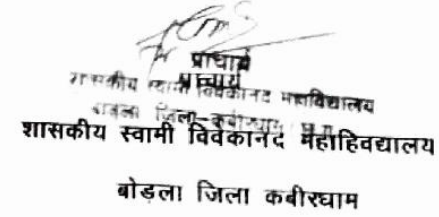 प्राचार्य
प्राचार्य
शासकीय स्वामी विवेकानंद महाविद्यालय
जिला-कबीरधाम
शासकीय स्वामी विवेकानंद महाहिवद्यालय
बोड़ला जिला कबीरघाम